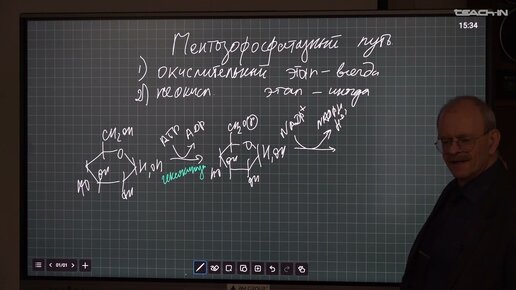 TEACH-IN
15:34
Пентозофосфатный путь
1) окислительный этап - всегда
2) неокисл. этап - иногда
CH2OH O H,OH HO OH OH
ATP ADP
гексокиназа
CH2O(P) O H,OH HO OH OH
NADP+ NADPH
01/01